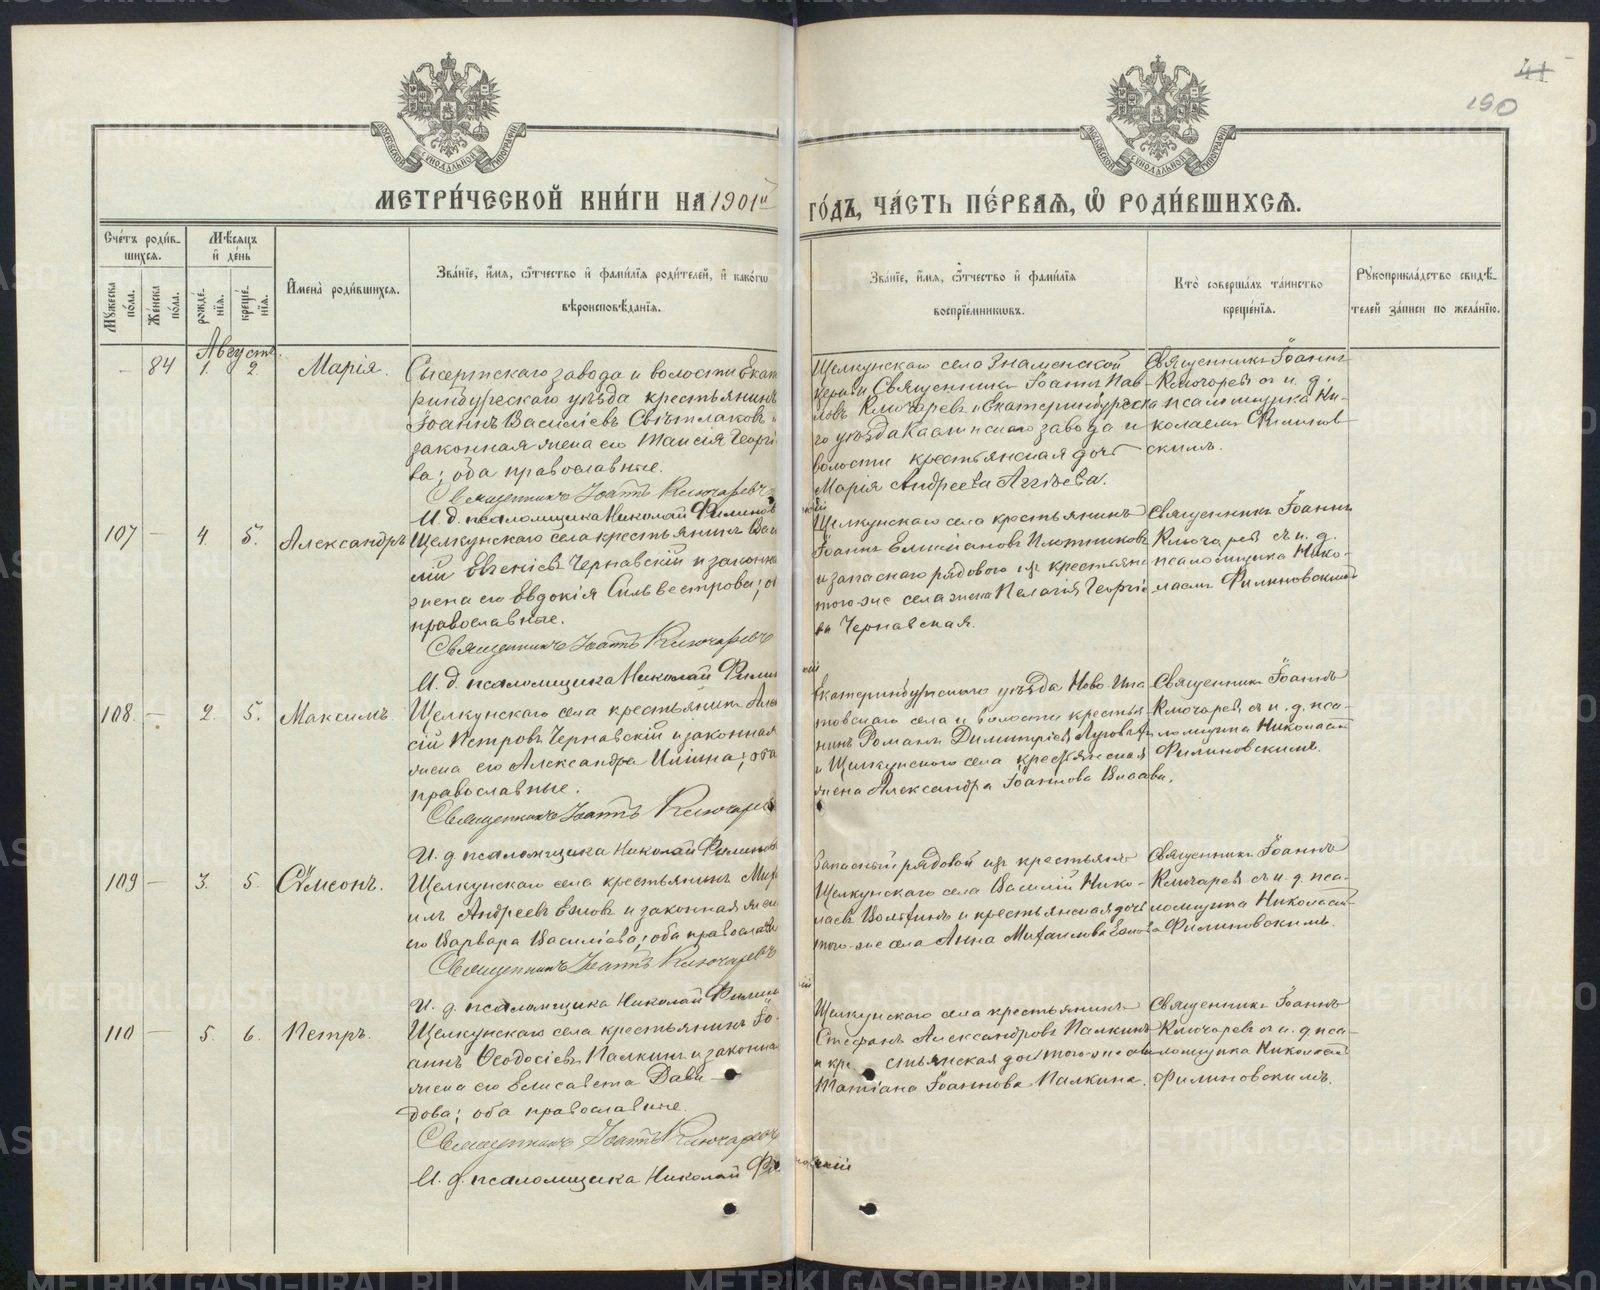 41
190
МЕТРИ́ЧЕСКОЙ КНИ́ГИ НА 1901й ГО́ДЪ, ЧА́СТЬ ПЕ́РВАЯ, Ѽ РОДИ́ВШИХСЯ.
МОСКОВСКОЙ СѴНОДАЛЬНОЙ ТИПОГРАФІИ
МОСКОВСКОЙ СѴНОДАЛЬНОЙ ТИПОГРАФІИ
Сче́тъ роди́в-
шихся.
Мѣ́сяцъ
и҆ де́нь
Мꙋ́жеска по́ла.
Же́нска по́ла.
рожде́-
нїя.
креще́-
нїя.
И҆мена̀ роди́вшихся.
Зва́нїе, и҆́мя, ѻ҆́тчество и҆ фами́лїя роди́телей, и҆ како́гѡ
вѣроисповѣ́данїя.
Зва́нїе, и҆́мя, ѻ҆́тчество и҆ фами́лїя
воспрїе́мникѡвъ.
Кто̀ соверша́лъ та́инство
креще́нїя.
Рꙋкоприкла́дство свидѣ́-
телей за́писи по жела́нїю.
Августъ.
–
84
1.
2.
Марія.
Сысертскаго завода и волости Екат
ринбургскаго уѣзда крестьянинъ
Іоаннъ Василіевъ Свѣтлаковъ и
законная жена его Таисія Георгі
ва; оба православные.
Священникъ Іоаннъ Ключаревъ
И. д. псаломщика Николай Филинов
Щелкунскаго села Знаменской
церкви Священникъ Іоаннъ Пав-
ловъ Ключаревъ и Екатеринбургска
го уѣзда Каслинскаго завода и
волости крестьянская дочь
Марія Андреева Аггѣева.
Священникъ Іоаннъ
Ключаревъ съ и. д.
псаломщика Ни-
колаемъ Филинов-
скимъ.
107
–
4.
5.
Александръ
Щелкунскаго села крестьянинъ Васи
лій Евгеніевъ Чернавскій и законна
жена его Евдокія Сильвестрова; об
православные.
Священникъ Іоаннъ Ключаревъ
И. д. псаломщика Николай Филин
Щелкунскаго села крестьянинъ
Іоаннъ Емиліановъ Плотниковъ
и запаснаго рядового изъ крестьянъ
того-же села жена Пелагія Георгіе
ва Чернавская.
Священникъ Іоаннъ
Ключаревъ съ и. д.
псаломщика Нико-
лаемъ Филиновскимъ
108.
–
2.
5.
Максимъ.
Щелкунскаго села крестьянинъ Але
сій Петровъ Чернавскій и законная
жена его Александра Иліина; оба
православные.
Священникъ Іоаннъ Ключарев
И. д. псаломщика Николай Филинов
Екатеринбургскаго уѣзда Ново-Ипа
товскаго села и волости крестья
нинъ Романъ Димитріевъ
и Щелкунскаго села крестьянская
жена Александра Іоаннова
Священникъ Іоаннъ
Ключаревъ съ и. д. пса-
ломщика Николаемъ
Филиновскимъ.
109
–
3.
5.
Сѵмеонъ.
Щелкунскаго села крестьянинъ Миха
илъ Андреевъ и законная жена
его Варвара Василіева; оба православ
Священникъ Іоаннъ Ключаревъ
И. д. псаломщика Николай Филин
Запасный рядовой изъ крестьянъ
Щелкунскаго села Василій Нико-
лаевъ и крестьянская дочь
того-же села Анна Михаилова
Священникъ Іоаннъ
Ключаревъ съ и. д. пса-
ломщика Николаемъ
Филиновскимъ.
110
–
5.
6.
Петръ.
Щелкунскаго села крестьянинъ Іо-
аннъ Ѳеодосіевъ Палкинъ и законна
жена его Елисавета Дави-
дова; оба православные.
Священникъ Іоаннъ Ключаревъ
И. д. псаломщика Николай Фи новскій
Щелкунскаго села крестьянинъ
Стефанъ Александровъ Палкинъ
и кре стьянская дочь того-же села
Татіана Іоаннова Палкина.
Священникъ Іоаннъ
Ключаревъ съ и. д. пса-
ломщика Николаемъ
Филиновскимъ.
METRIKI.GASO-URAL.RU